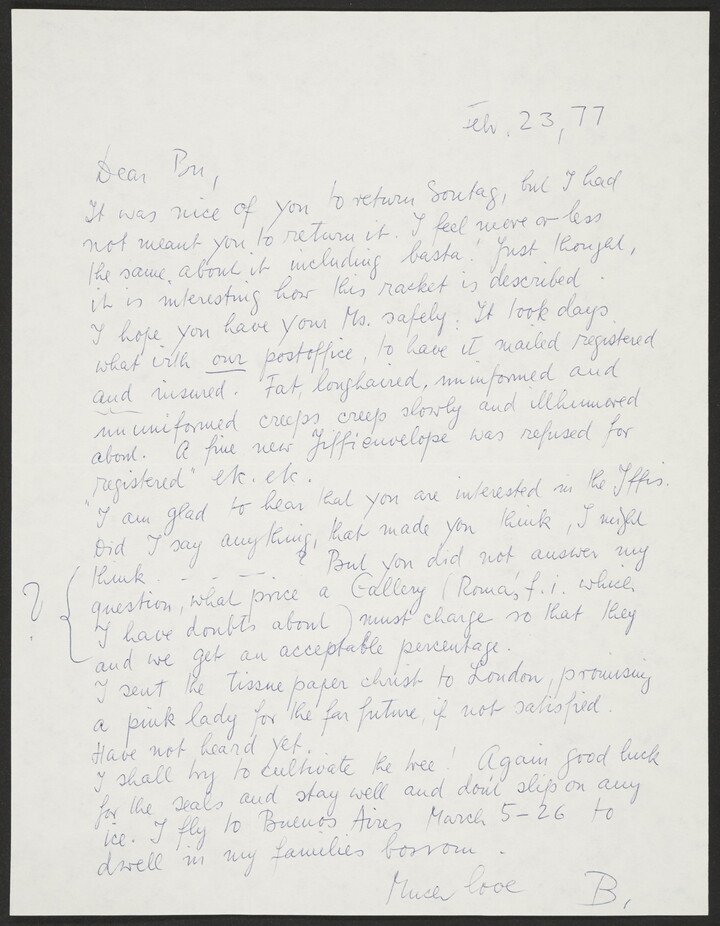 Febr. 23, 77
Dear Bri,
It was nice of you to return Sontag, but I had
not meant you to return it. I feel more or less
the same about it including basta! Just thought,
it is interesting how this racket is described.
I hope you have your Ms. safely: It took days
what with our postoffice, to have it mailed registered
and insured. Fat, longhaired, uninformed and
ununiformed creeps creep slowly and illhumored
about. A fine new Jiffienvelope was refused for
"registered" etc. etc.
I am glad to hear that you are interested in the Iffis.
Did I say anything, that made you think, I might
think - - - - - ? But you did not answer my
question, what price a Gallery (Roma's f.i. which
? { I have doubts about) must charge so that they
and we get an acceptable percentage.
I sent the tissuepaper christ to London, promising
a pink lady for the far future, if not satisfied.
Have not heard yet.
I shall try to cultivate the tree! Again good luck
for the seals and stay well and don't slip on any
ice. I fly to Buenos Aires March 5-26 to
dwell in my families bossom.
Much love B.